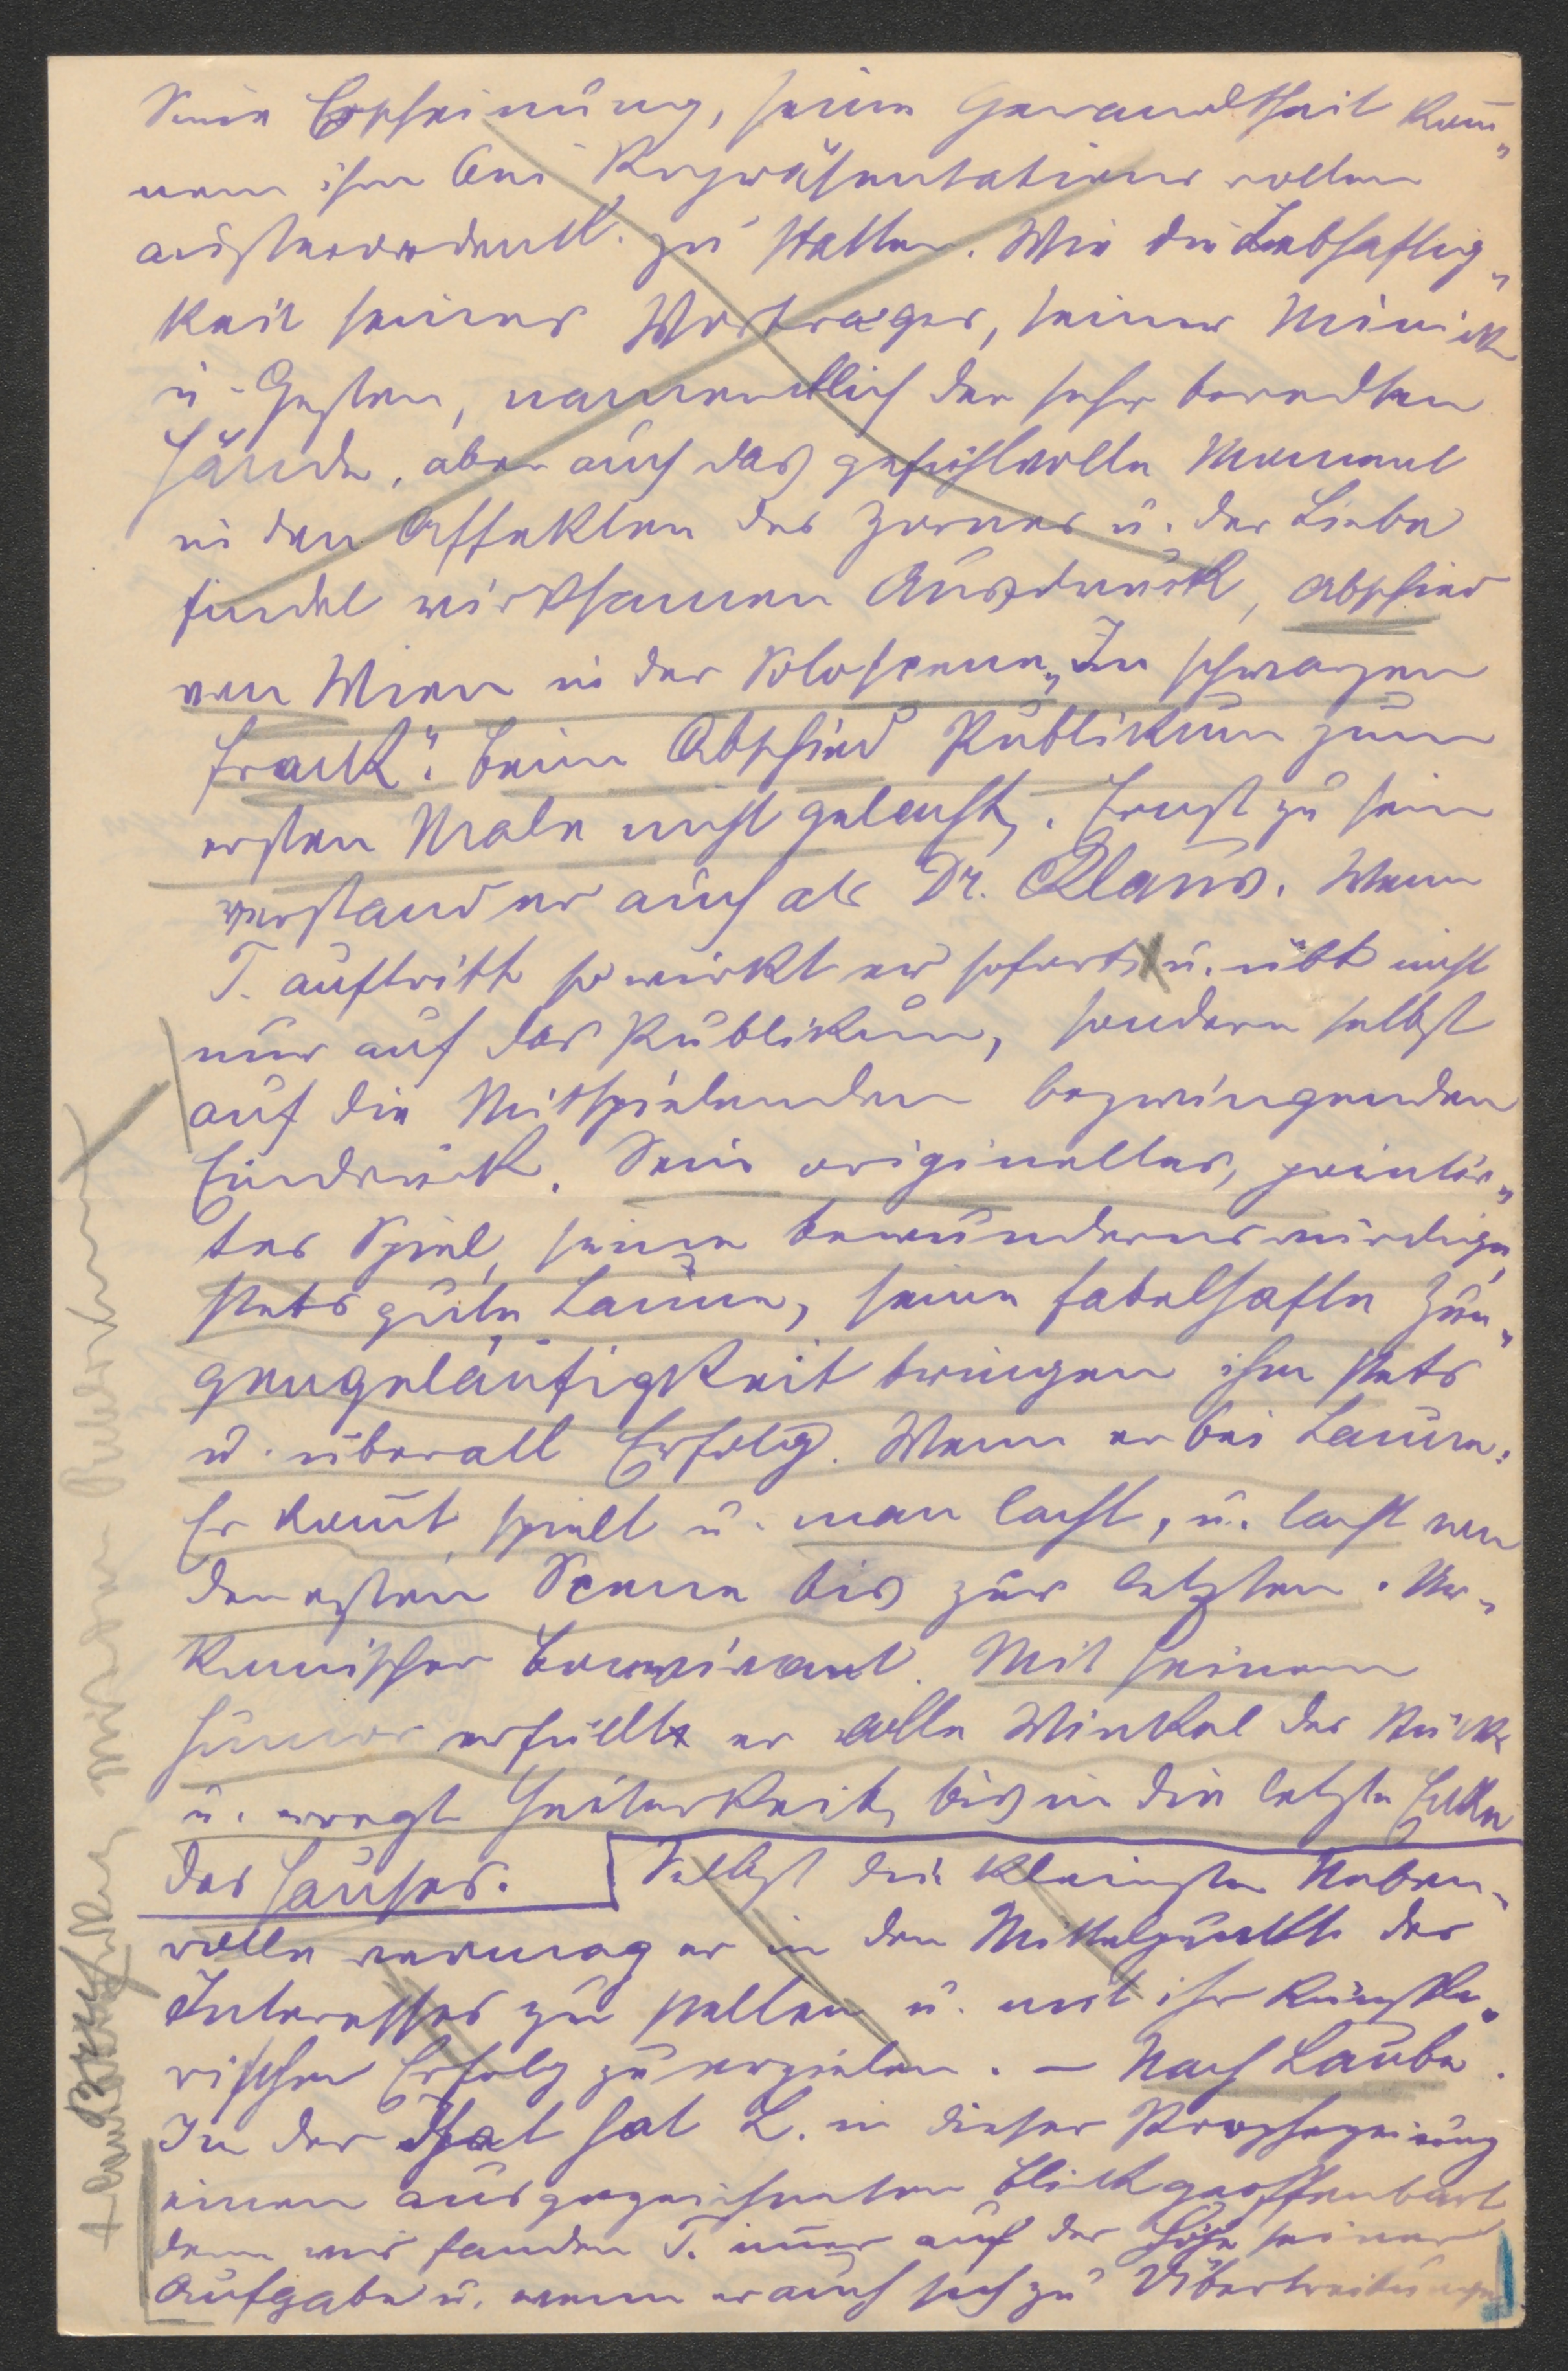 Seine Erscheinung, seine Gewandtheit kom̅„
men ihm bei Repräsentationsrollen
ausserordentl. zu statten. Wie die Lebhaftig„
keit seines Vortrages, seiner Mimik
u. Gesten, namendtlich der sehr beredten
Hände, aber auch das gefühlvolle Moment
in den Affekten des Zornes u. der Liebe
findet wirksamen Ausdruck, Abschied
von Wien in der Soloscene „Im schwarzen
Frack“. Beim Abschied Publikum zum
ersten Male nicht gelacht. Ernst zu sein
verstand er auch als Dr. Klaus. Wenn
T. auftritt so wirkt er sofort u. übt nicht
nur auf das Publikum, sondern selbst
auf die Mitspielenden bezwingenden
Eindruck. Sein originelles, pointir„
tes Spiel, seine bewundernswürdige,
stets gute Laune, seine fabelhafte Zun„
gengeläufigkeit bringen ihm stets
u. überall Erfolg. Wenn er bei Laune:
Er kom̅t spielt u. man lacht, u. lacht von
der ersten Scene bis zur letzten.
komischer Bonvivant. Mit seinem
Humor erfüllt er alle Winkel des Stücks
u. erregt Heiterkeit bis in die letzte Ecke
des Hauses. Selbst die kleinste Neben„
rolle vermag er in den Mittelpunkt des
Interesses zu stellen u. mit ihr künstle„
rischen Erfolg zu erzielen. – Nach Laube.
In der That hat L. in dieser Prophezeiung
einen ausgezeichneten Blick geoffenbart
denn wir fanden T. im̅er auf der Höhe seiner
Aufgabe u. wenn er auch sich zu Übertreibungen